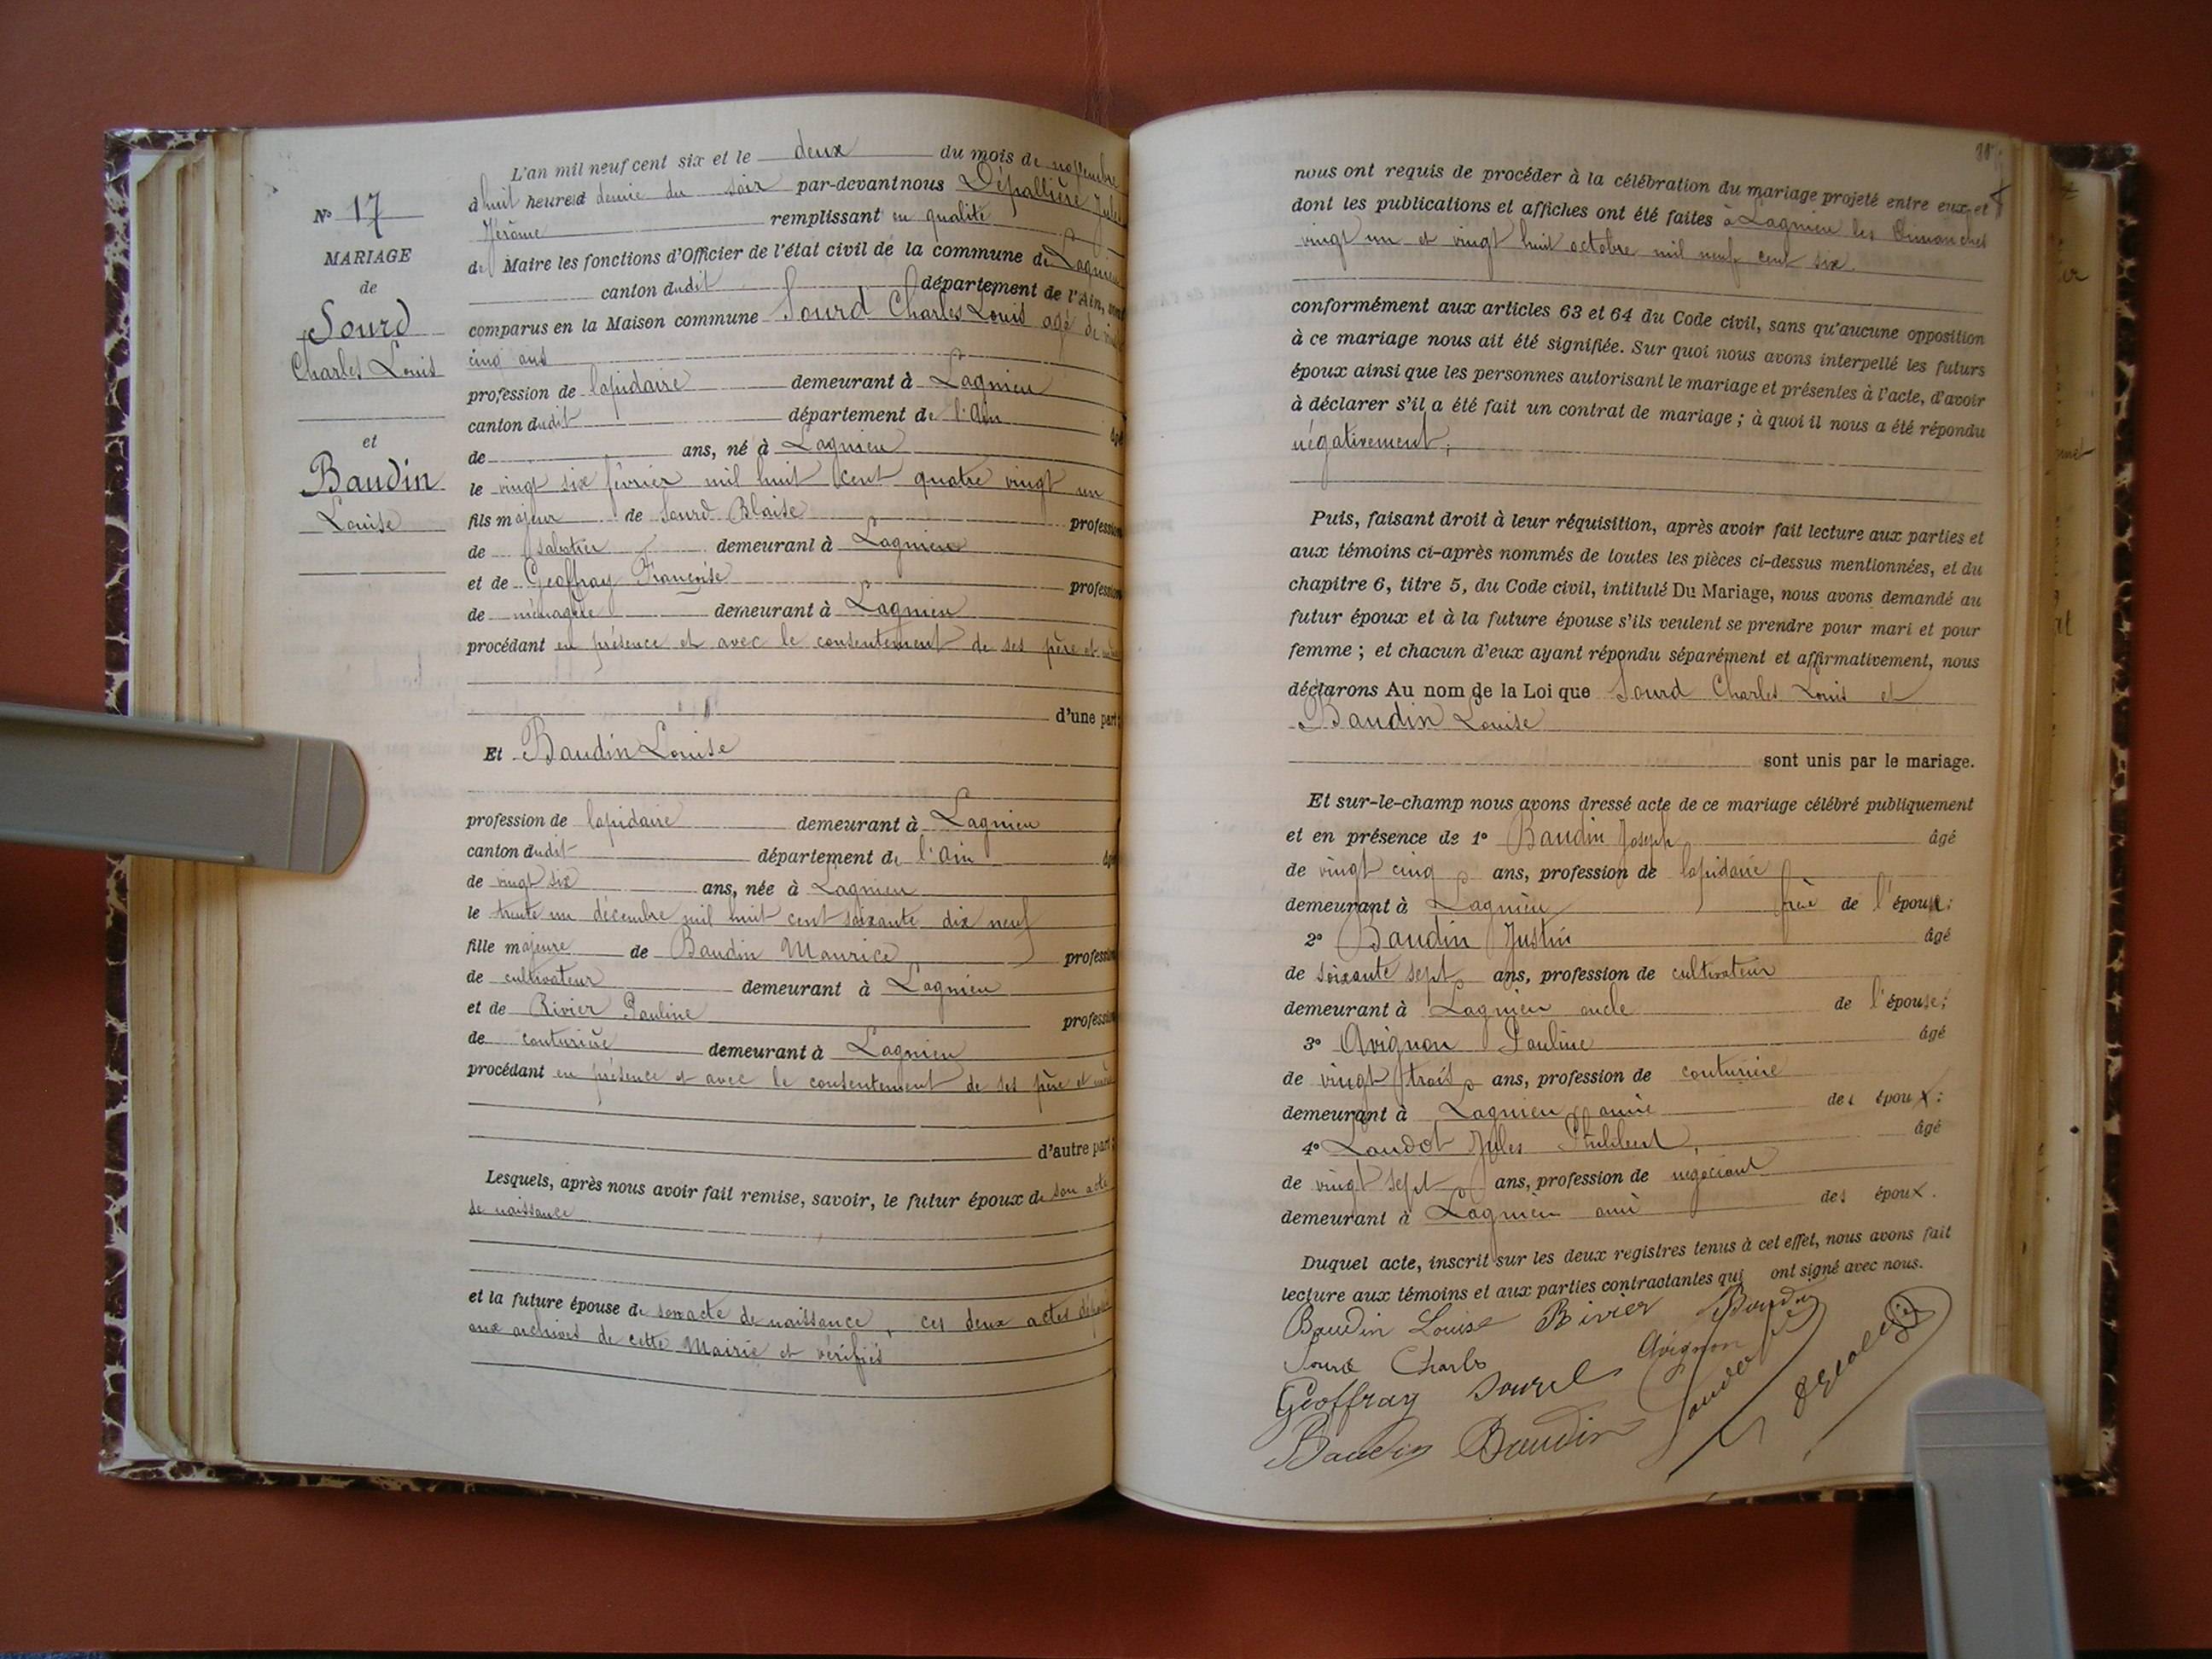 N° 17
MARIAGE
de
Sourd
Charles Louis
et
Baudin
Louise
L'an mil neuf cent six et le deux du mois de novembre
à huit heures et demie du soir par-devant nous Dépallière Jules
Jérôme remplissant en qualité
de Maire les fonctions d'Officier de l'état civil de la commune de Lagnieu
canton dudit département de l'Ain, sont
comparus en la Maison commune Sourd Charles Louis agé de vingt
cinq ans
profession de lapidaire demeurant à Lagnieu
canton dudit département de l'Ain âgé
de ans, né à Lagnieu
le vingt six février mil huit cent quatre vingt un
fils majeur de Sourd Blaise profession
de sabotier demeurant à Lagnieu
et de Geoffray Françoise profession
de ménagère demeurant à Lagnieu
procédant en présence et avec le consentement de ses père et mère
d'une part;
Et Baudin Louise
profession de lapidaire demeurant à Lagnieu
canton dudit département de l'ain âgé
de vingt six ans, née à Lagnieu
le trente un décembre mil huit cent soixante dix neuf
fille majeure de Baudin Maurice profession
de cultivateur demeurant à Lagnieu
et de Rivier Pauline profession
de couturière demeurant à Lagnieu
procédant en présence et avec le consentement de ses père et mère
d'autre part;
Lesquels, après nous avoir fait remise, savoir, le futur époux de son acte
de naissance
et la future épouse de son acte de naissance, ces deux actes déposés
aux archives de cette Mairie et vérifiés
nous ont requis de procéder à la célébration du mariage projeté entre eux et
dont les publications et affiches ont été faites à Lagnieu les Dimanches
vingt un et vingt huit octobre mil neuf cent six.
conformément aux articles 63 et 64 du Code civil, sans qu'aucune opposition
à ce mariage nous ait été signifiée. Sur quoi nous avons interpellé les futurs
époux ainsi que les personnes autorisant le mariage et présentes à l'acte, d'avoir
à déclarer s'il a été fait un contrat de mariage; à quoi il nous a été répondu
négativement;
Puis, faisant droit à leur réquisition, après avoir fait lecture aux parties et
aux témoins ci-après nommés de toutes les pièces ci-dessus mentionnées, et du
chapitre 6, titre 5, du Code civil, intitulé Du Mariage, nous avons demandé au
futur époux et à la future épouse s'ils veulent se prendre pour mari et pour
femme; et chacun d'eux ayant répondu séparément et affirmativement, nous
déclarons Au nom de la Loi que Sourd Charles Louis et
Baudin Louise
sont unis par le mariage.
Et sur-le-champ nous avons dressé acte de ce mariage célébré publiquement
et en présence de 1° Baudin Joseph âgé
de vingt cinq ans, profession de lapidaire
demeurant à Lagnieu frère de l'épouse;
2° Baudin Justin âgé
de soixante sept ans, profession de cultivateur
demeurant à Lagnieu oncle de l'épouse;
3° Avignon Pauline âgé
de vingt trois ans, profession de couturière
demeurant à Lagnieu amie des époux;
4° Laudot Jules Philibert, âgé
de vingt sept ans, profession de négociant
demeurant à Lagnieu ami des époux.
Duquel acte, inscrit sur les deux registres tenus à cet effet, nous avons fait
lecture aux témoins et aux parties contractantes qui ont signé avec nous.
Baudin Louise Rivier Baudin
Sourd Charles Avignon
Geoffray Sourd
Baudin Baudin